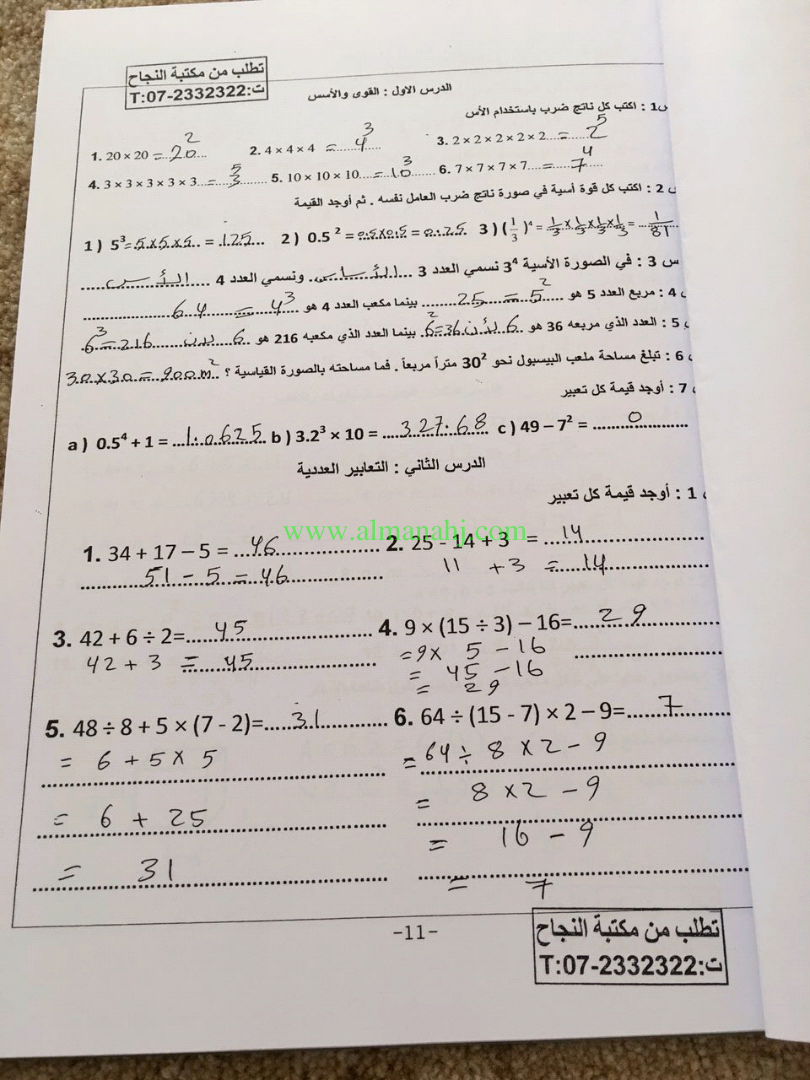 تطلب من مكتبة النجاح
ت:T:07-2332322
الدرس الاول : القوى والأسس
س1 : اكتب كل ناتج ضرب باستخدام الأس
1. 20 × 20 = 20²
2. 4 × 4 × 4 = 4³
3. 2 × 2 × 2 × 2 × 2 = 2⁵
4. 3 × 3 × 3 × 3 × 3 = 3⁵
5. 10 × 10 × 10 = 10³
6. 7 × 7 × 7 × 7 = 7⁴
2 : اكتب كل قوة أسية في صورة ناتج ضرب العامل نفسه . ثم أوجد القيمة
1 ) 5³ = 5×5×5 = 125 2 ) 0.5² = 0.5×0.5 = 0.25 3 ) (1/3)⁴ = 1/3 × 1/3 × 1/3 × 1/3 = 1/81
س 3 : في الصورة الأسية 3⁴ نسمي العدد 3 الأساس . ونسمي العدد 4 الأس
4 : مربع العدد 5 هو 5² = 25 بينما مكعب العدد 4 هو 4³ = 64
5 : العدد الذي مربعه 36 هو 6 لأن 6² = 36 بينما العدد الذي مكعبه 216 هو 6 لأن 6³ = 216
6 : تبلغ مساحة ملعب البيسبول نحو 30² متراً مربعاً . فما مساحته بالصورة القياسية ؟ 30×30 = 900m²
7 : أوجد قيمة كل تعبير
a ) 0.5⁴ + 1 = 1.0625 b ) 3.2³ × 10 = 327.68 c ) 49 – 7² = 0
الدرس الثاني : التعابير العددية
1 : أوجد قيمة كل تعبير
www.almanahj.com
1. 34 + 17 – 5 = 46
51 - 5 = 46
2. 25 - 14 + 3 = 14
11 + 3 = 14
3. 42 + 6 ÷ 2= 45
42 + 3 = 45
4. 9 × (15 ÷ 3) – 16= 29
=9× 5 - 16
= 45 - 16
= 29
5. 48 ÷ 8 + 5 × (7 - 2)= 31
= 6 + 5 × 5
= 6 + 25
= 31
6. 64 ÷ (15 - 7) × 2 – 9= 7
=64 ÷ 8 × 2 - 9
= 8 × 2 - 9
= 16 - 9
= 7
-11-
تطلب من مكتبة النجاح
ت:T:07-2332322